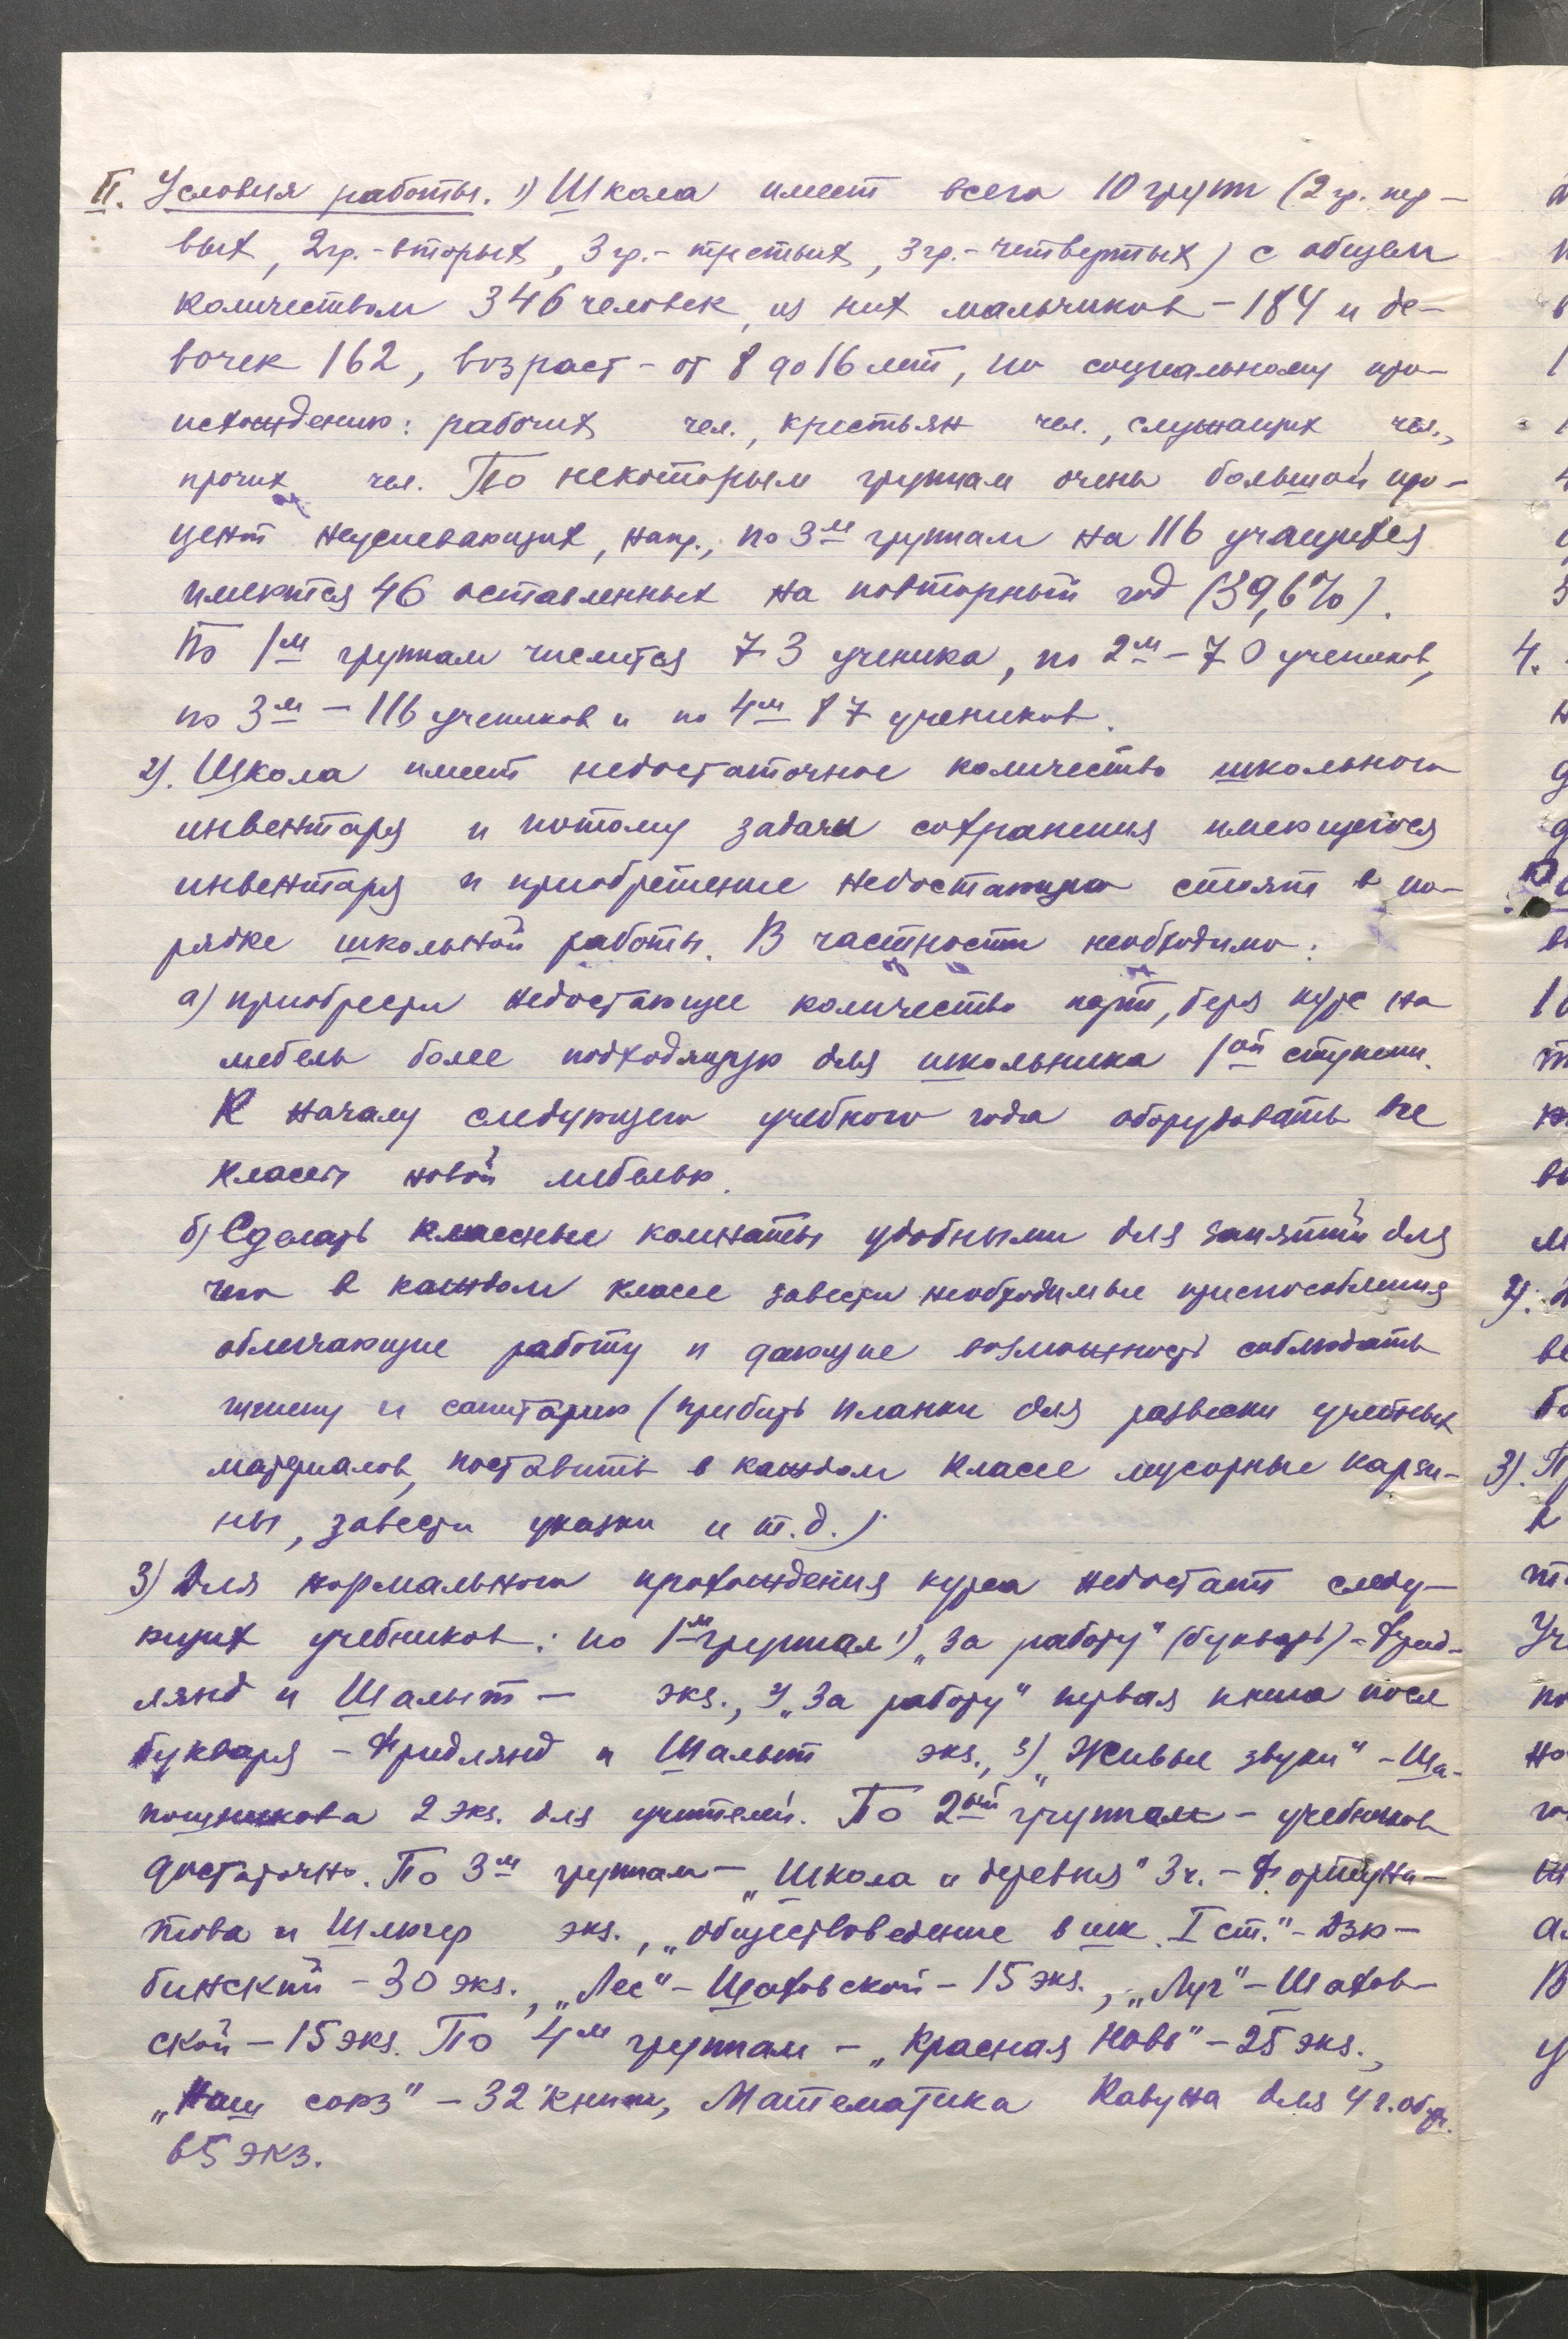 II. Условия работы. 1) Школа имеет всего 10 групп (2 гр. пер-
вых, 2 гр.-вторых, 3 гр.- третьих, 3 гр.- четвертых) с общем
количеством 346 человек, из них мальчиков - 184 и де-
вочек 162, возраст - от 8 до 16 лет, по социальному про-
исхождению: рабочих чел., крестьян чел., служащих чел.,
прочих чел. По некоторым группам очень большой про-
цент неуспевающих, напр., по 3м группам на 116 учащихся
имеются 46 оставленных на повторный год (39,6%).
По 1м группам числится 73 ученика, по 2м - 70 учеников,
по 3м - 116 учеников и по 4м 87 учеников.
2). Школа имеет недостаточное количество школьного
инвентаря и потому задача сохранения имеющегося
инвентаря и приобретение недостающего стоят в по-
рядке школьной работы. В частности необходимо:
а) приобрести недостающее количество парт, беря курс на
мебель более подходящую для школьника 1ой ступени.
К началу следующего учебного года оборудовать все
классы новой мебелью.
б) Сделать классные комнаты удобными для занятий для
чего в каждом классе завести необходимые приспособления
облегчающие работу и дающие возможность соблюдать
гигиену и санитарию (прибить планки для развески учебных
материалов, поставить в каждом классе мусорные карзи-
ны, завести указки и т.д.).
3) Для нормального прохождения курса недостает следу-
ющих учебников: по 1м группам 1) „За работу" (букварь) - Фрид-
лянд и Шалыт - экз., 2) „За работу" первая книга после
букваря - Фридлянд и Шалыт экз., 3) „Живые звуки" - Ша-
пошникова 2 экз. для учителей. По 2ой группам - учебников
достаточно. По 3м группам - „Школа и деревня" 3 ч. - Фортуна-
това и Шлегер экз., „обществоведение в шк. I ст." - Дзю-
бинский - 30 экз., „Лес" - Шаховской - 15 экз., „Луг" - Шахов-
ской - 15 экз. По 4м группам - „Красная Новь" - 25 экз.,
„Наш союз" - 32 книги, Математика Кавуна для 4 г. обуч.
65 экз.